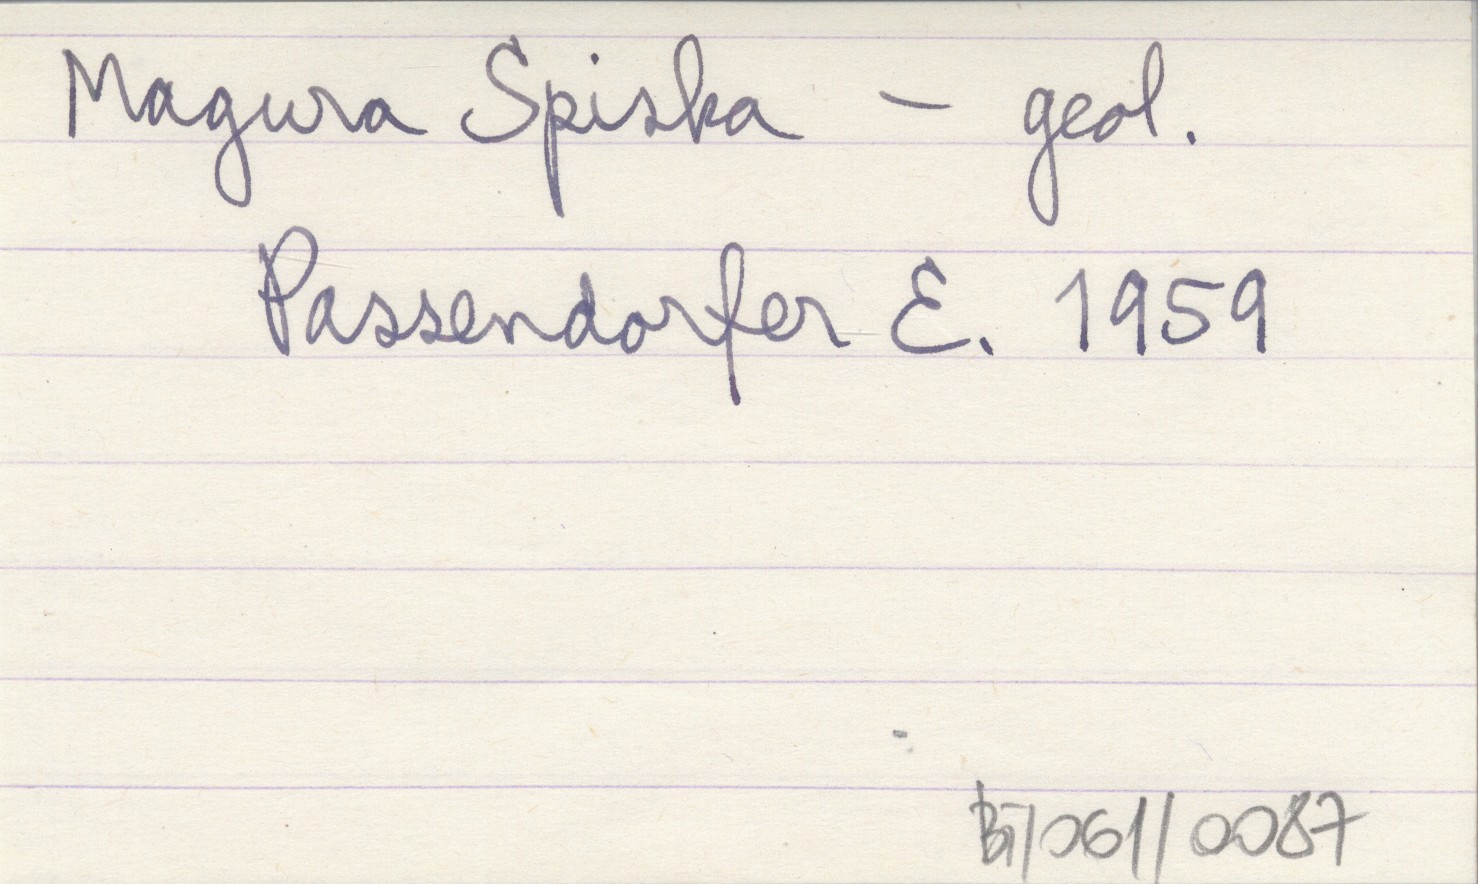 Magura Spiska – geol.
Passendorfer E. 1959
BT/061/0087